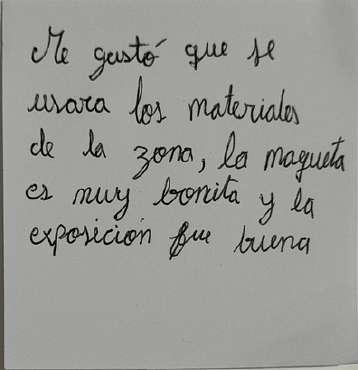 Me gustó que se
usara los materiales
de la zona, la maqueta
es muy bonita y la
exposición fue buena